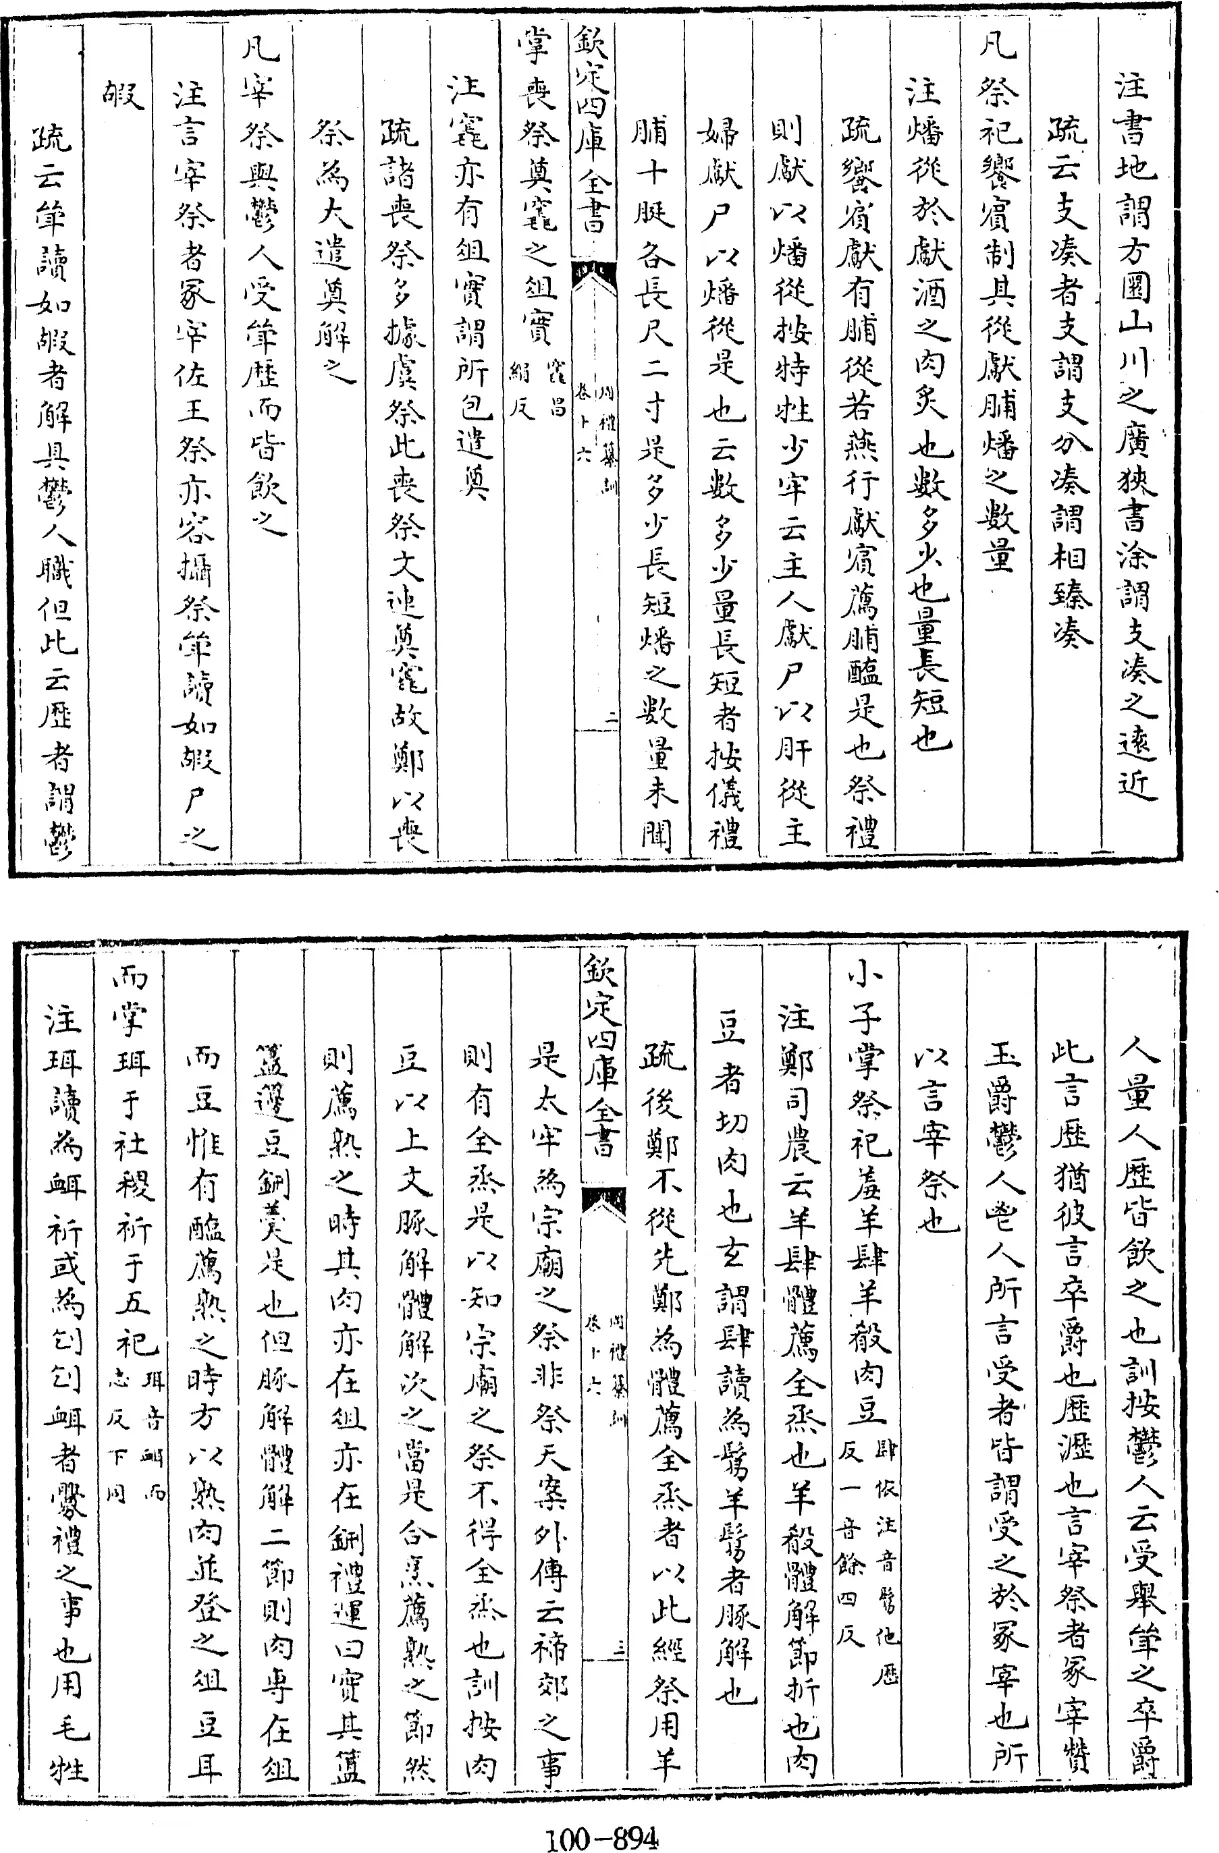 注書地謂方圜山川之廣狹書涂謂支湊之遠近
疏云支湊者支謂支分湊謂相臻湊
凡祭祀饗賔制其從獻脯燔之數量
注燔從於獻酒之肉炙也數多少也量長短也
疏饗賔獻有脯從若燕行獻賔薦脯醢是也祭禮
則獻以燔從按特牲少牢云主人獻尸以肝從主
婦獻尸以燔從是也云數多少量長短者按儀禮
脯十脡各長尺二寸是多少長短燔之數量未聞
欽定四庫全書
周禮纂訓
卷十六
二
掌喪祭奠竁之俎實
竁昌
絹反
注竁亦有俎實謂所包遣奠
疏諸喪祭多據虞祭此喪祭文連奠竁故鄭以喪
祭為大遣奠解之
凡宰祭與鬱人受斝歷而皆飲之
注言宰祭者冢宰佐王祭亦容攝祭斝讀如嘏尸之
嘏
疏云斝讀如嘏者解具鬱人職但此云歷者謂鬱
人量人歷皆飲之也訓按鬱人云受舉斝之卒爵
此言歷猶彼言卒爵也歷瀝也言宰祭者冢宰贊
玉爵鬱人鬯人所言受者皆謂受之於冢宰也所
以言宰祭也
小子掌祭祀羞羊肆羊殽肉豆
肆依注音鬄他歴
反一音餘四反
注鄭司農云羊肆體薦全烝也羊殽體解節折也肉
豆者切肉也玄謂肆讀為鬄羊鬄者豚解也
疏後鄭不從先鄭為體薦全烝者以此經祭用羊
欽定四庫全書
周禮纂訓
卷十六
三
是太牢為宗廟之祭非祭天案外傳云禘郊之事
則有全烝是以知宗廟之祭不得全烝也訓按肉
豆以上文豚解體解次之當是合烹薦熟之節然
則薦熟之時其肉亦在俎亦在鉶禮運曰實其簠
簋籩豆鉶羮是也但豚解體解二節則肉専在俎
而豆惟有醢薦熟之時方以熟肉並登之俎豆耳
而掌珥于社稷祈于五祀
珥音衈而
志反下同
注珥讀為衈祈或為刉刉衈者釁禮之事也用毛牲
100-894